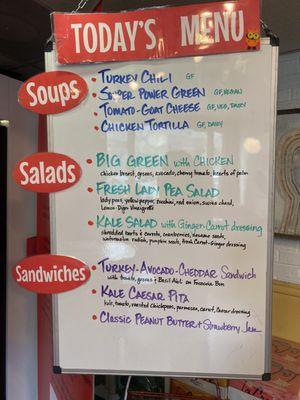 TODAY'S MENU
Soups
• TURKEY CHILI GF
• SUPER POWER GREEN GF, VEGAN
• TOMATO-GOAT CHEESE GF, VEG, DAIRY
• CHICKEN TORTILLA GF, DAIRY
Salads
• BIG GREEN with CHICKEN
chicken breast, greens, avocado, cherry tomato, hearts of palm
• FRESH LADY PEA SALAD
lady peas, yellow pepper, zucchini, red onion, swiss chard,
Lemon-Dijon Vinaigrette
• KALE SALAD with Ginger-Carrot dressing
shredded beets & carrots, cranberries, sesame seeds,
watermelon radish, pumpkin seeds, fresh Carrot-Ginger dressing
Sandwiches
• TURKEY-AVOCADO-CHEDDAR Sandwich
with tomato, greens & Basil Aioli on Focaccia Bun
• KALE CAESAR PITA
kale, tomato, roasted chickpeas, parmesan, carrot, Caesar dressing
• CLASSIC PEANUT BUTTER & Strawberry Jam